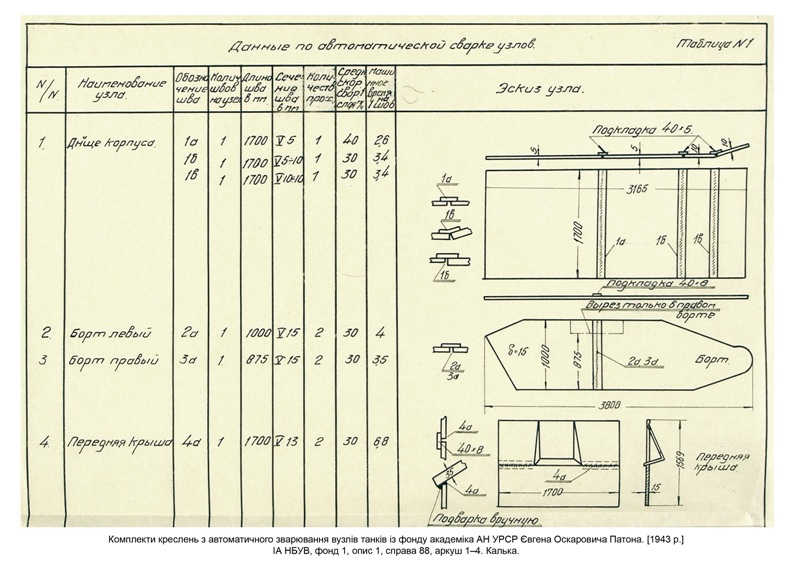 Данные по автоматической сварке узлов.
Таблица N1
N/N.
Наименование узла.
Обозна чение шва
Колич швов на узел
Длина шва в мм
Сече ния шва в мм
Колич честв прох.
Средн скор свар 1 слоя %
Маши нное время на 1 шов
Эскиз узла.
1. Днище корпуса. 1а 1 1700 V 5 1 40 2,6
1б 1 1700 V5÷10 1 30 3,4
1в 1 1700 V10÷10 1 30 3,4
Подкладка 40×5
5
5
10
10
3165
1700
1а
1б
1в
1а
1в
1б
Подкладка 40×8
Вырез только в правом
борте
2 Борт левый 2а 1 1000 V 15 2 30 4
3 Борт правый 3а 1. 875 V 15 2 30 3,5
2а
3а
δ=15
1000
875
2а, 3а
Борт.
3808
4. Передняя крыша 4а 1 1700 V 13 2 30 6,8
4а
40×8
4а
4а
1700
1569
15
Передняя
крыша.
Подварка вручную
Комплекти креслень з автоматичного зварювання вузлів танків із фонду академіка АН УРСР Євгена Оскаровича Патона. [1943 р.]
ІА НБУВ, фонд 1, опис 1, справа 88, аркуш 1–4. Калька.